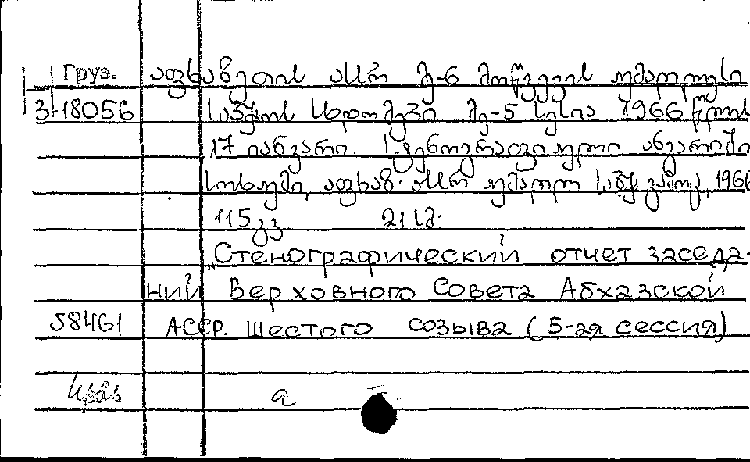 Груз. აფხაზეთის ასსრ მე-6 მოწვევის უმაღლესი
3-18056 საბჭოს სხდომები მე-5 სესია 1966 წლის
17 იანვარი. სტენოგრაფიული ანგარიში
სოხუმი, აფხაზ. ასსრ უმაღლ. საბჭ. გამოც., 1966
115 გვ. 21 სმ.
Стенографический отчет заседа-
ний Верховного Совета Абхазской
58461 АССР. Шестого созыва (5-ая сессия)
а